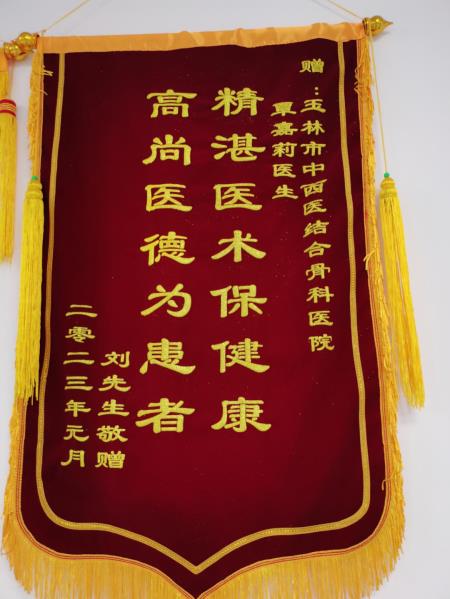 赠：玉林市中西医结合骨科医院
覃嘉莉医生
精湛医术保健康
高尚医德为患者
刘先生敬赠
二零二三年元月